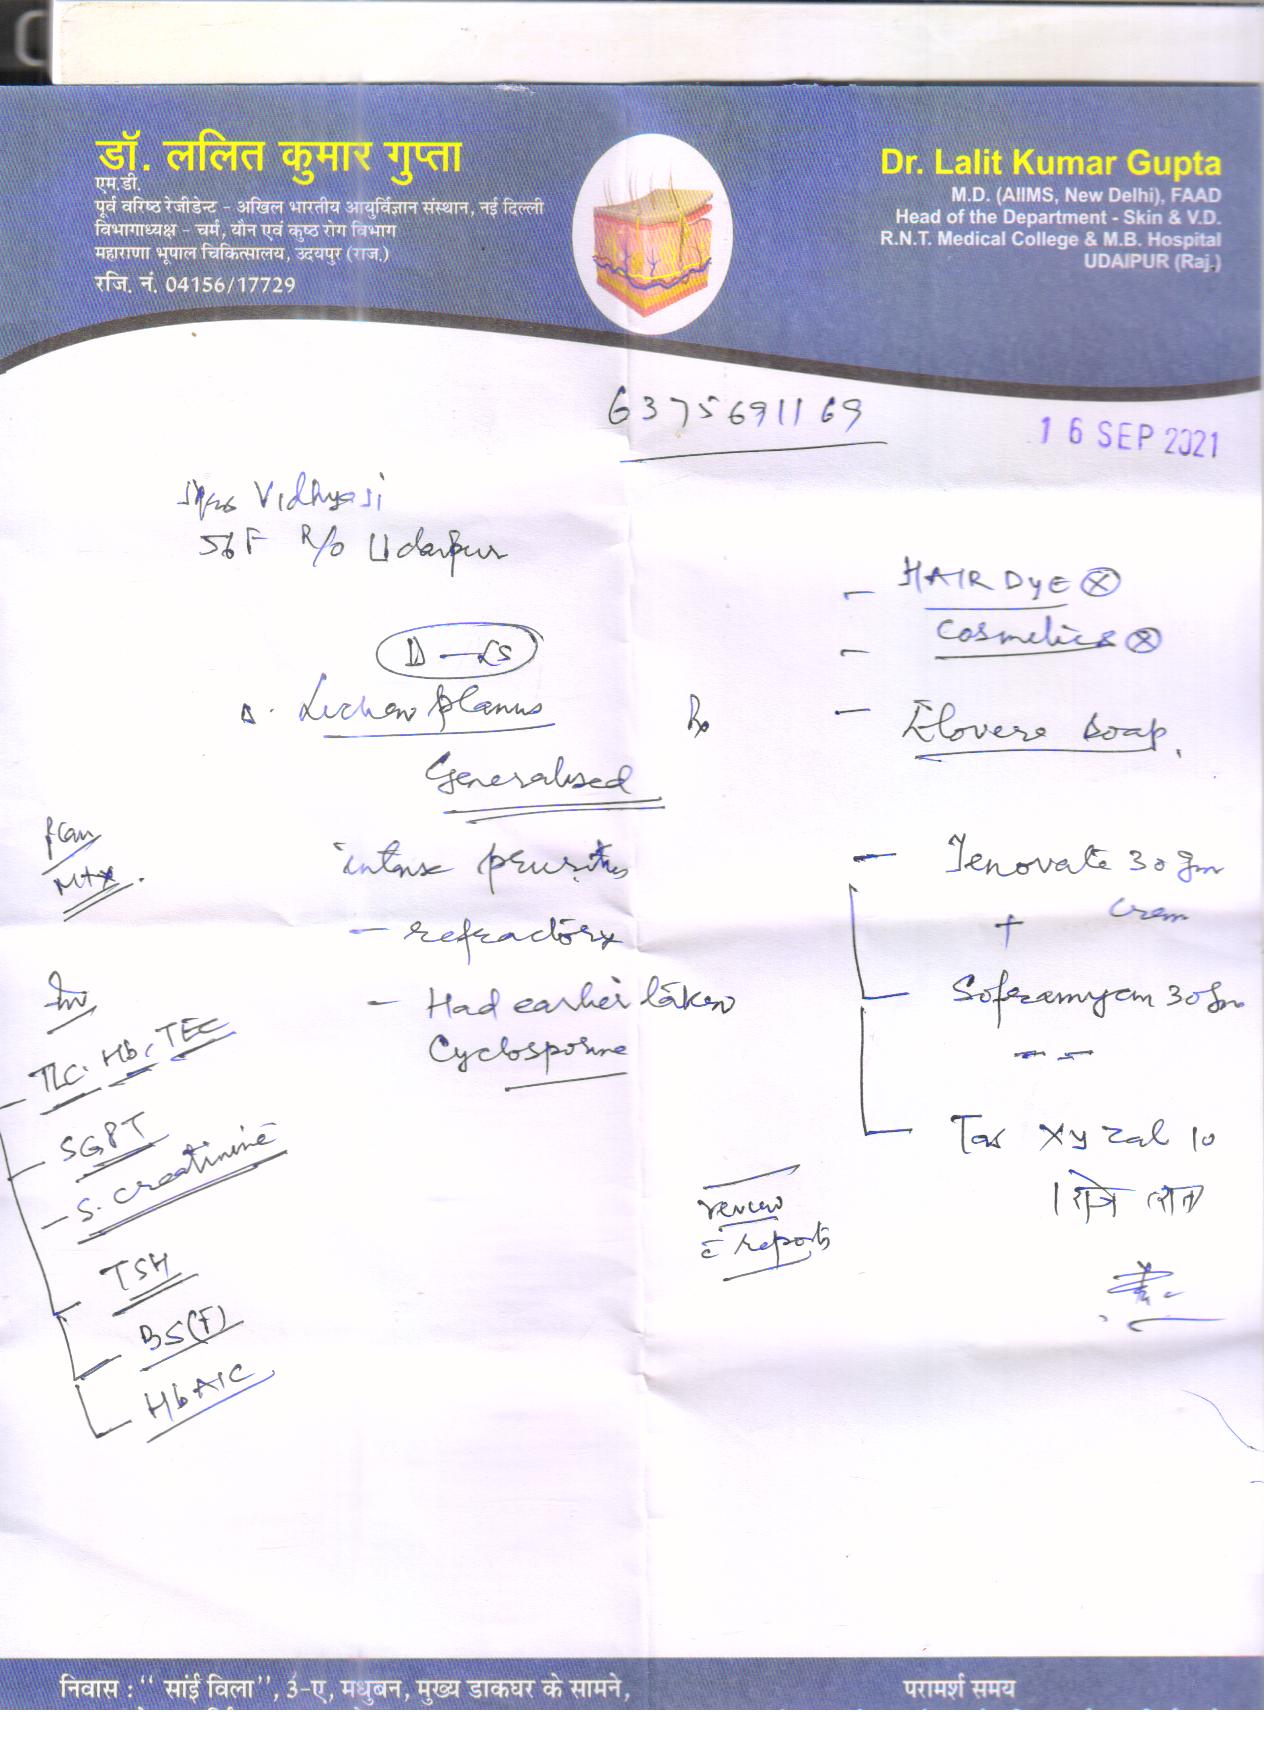 डॉ. ललित कुमार गुप्ता
एम.डी.
पूर्व वरिष्ठ रेजीडेन्ट - अखिल भारतीय आयुर्विज्ञान संस्थान, नई दिल्ली
विभागाध्यक्ष - चर्म, यौन एवं कुष्ठ रोग विभाग
महाराणा भूपाल चिकित्सालय, उदयपुर (राज.)
रजि. नं. 04156/17729
Dr. Lalit Kumar Gupta
M.D. (AIIMS, New Delhi), FAAD
Head of the Department - Skin & V.D.
R.N.T. Medical College & M.B. Hospital
UDAIPUR (Raj.)
6375691169
16 SEP 2021
Vidhyasi
56 F R/o Udaipur
Lichen planus
Generalised
intense pruritus
- refractory
- Had earlier taken
Cyclosporine
plan
Mtx.
Inv
TLC. Hb, TEC
- SGPT
- S. Creatinine
- TSH
- BS(F)
- HbA1C
- HAIR DYE ⊗
- Cosmetics ⊗
Rx
- Elovera soap.
- Tenovate 30 gm
Crem
+
- Soframycin 30 gm
- Tab Xyzal 10
review
c̄ reports
निवास : “ सांई विला”, 3-ए, मधुबन, मुख्य डाकघर के सामने,
परामर्श समय